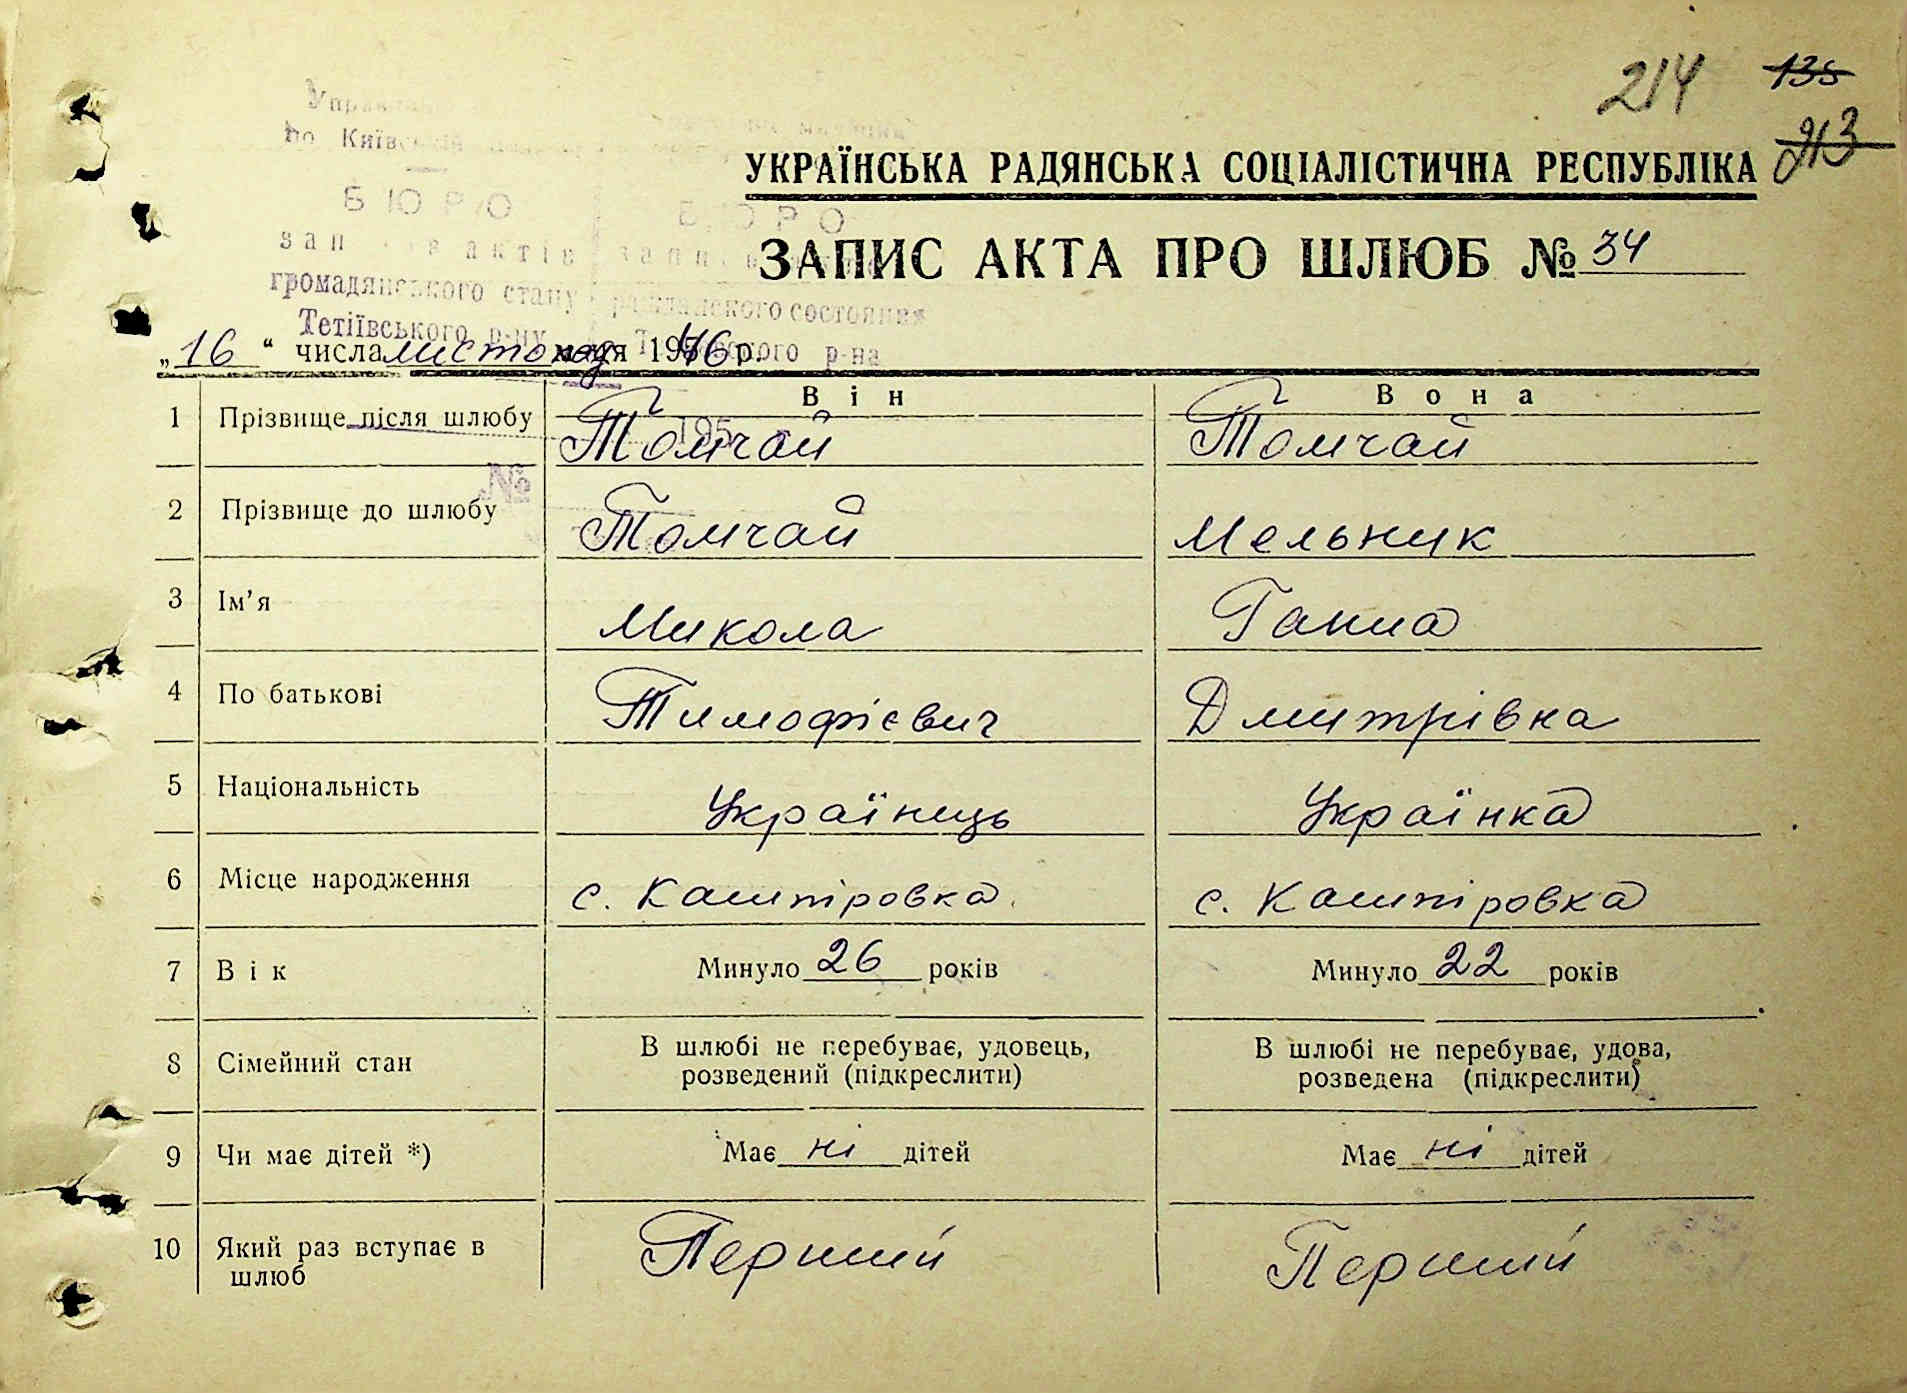 214 135
213
по Київській
УКРАЇНСЬКА РАДЯНСЬКА СОЦІАЛІСТИЧНА РЕСПУБЛІКА
БЮРО БЮРО
ЗАПИС АКТА ПРО ШЛЮБ № 34
записів актів
громадянського стану гражданского состояния
Тетіївського р-ну р-на
„16“ числа листопад м-ця 1946 р.
Він Вона
1 Прізвище після шлюбу Томчай Томчай
195
№
2 Прізвище до шлюбу Томчай Мельник
3 Ім’я Микола Ганна
4 По батькові Тимофієвич Дмитрівка
5 Національність Українець Українка
6 Місце народження с. Каштіровка с. Каштіровка
7 Вік Минуло 26 років Минуло 22 років
8 Сімейний стан В шлюбі не перебуває, удовець, розведений (підкреслити) В шлюбі не перебуває, удова, розведена (підкреслити)
9 Чи має дітей *) Має ні дітей Має ні дітей
10 Який раз вступає в шлюб Перший Перший